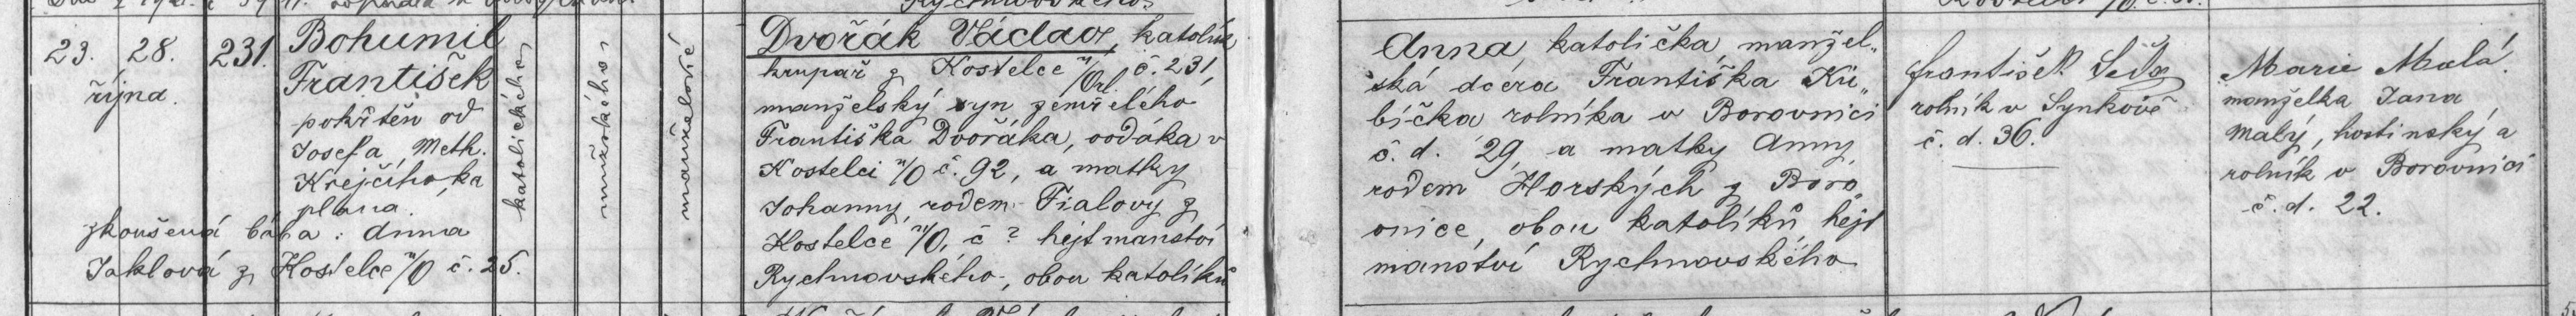 23. 28.
října.
231.
Bohumil
František
pokřtěn od
Josefa Meth.
Krejčího, ka
plana.
zkoušená bába: Anna
Jaklová z Kostelce n/O č. 25.
katolického
mužského
manželové
Dvořák Václav, katolík,
krupař z Kostelce n/Orl. č. 231,
manželský syn zemřelého
Františka Dvořáka, vodáka v
Kostelci n/O č. 92, a matky
Johanny, rodem Fialovy z
Kostelce n/O, č ? hejtmanství
Rychnovského, obou katolíků
Anna katolička, manžel„
ská dcera Františka Ku„
bíčka rolníka v Borovnici
č. d. 29, a matky Anny
rodem Horských z Boro
vnice, obou katolíků, hejt
manství Rychnovského
František
rolník v Synkově
č. d. 36.
Marie Malá,
manželka Jana
Malý, hostinský a
rolník v Borovnici
č. d. 22.